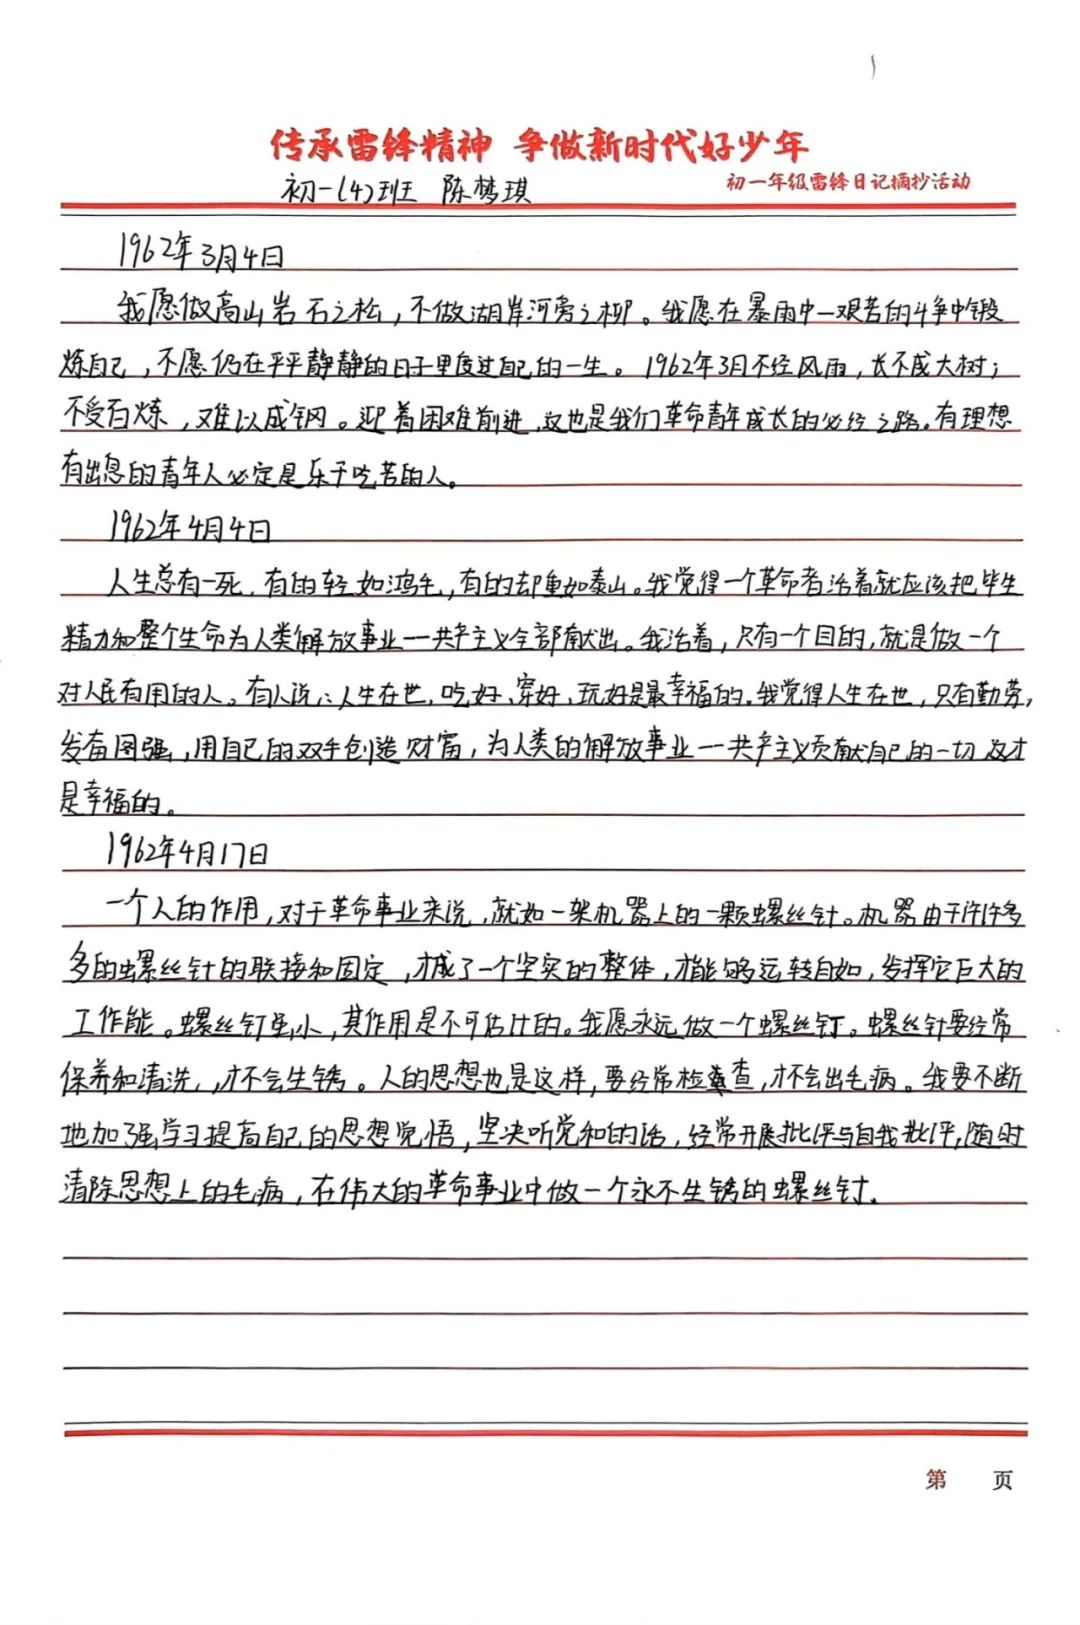 传承雷锋精神 争做新时代好少年
初一(4)班 陈梦琪
初一年级雷锋日记摘抄活动
1962年3月4日
我愿做高山岩石之松，不做湖岸河旁之柳。我愿在暴雨中一艰苦的斗争中锻
炼自己，不愿仍在平平静静的日子里度过自己的一生。1962年3月不经风雨，长不成大树；
不受百炼，难以成钢。迎着困难前进，这也是我们革命青年成长的必经之路。有理想
有出息的青年人必定是乐于吃苦的人。
1962年4月4日
人生总有一死，有的轻如鸿毛，有的却重如泰山。我觉得一个革命者活着就应该把毕生
精力和整个生命为人类解放事业一共产主义全部献出。我活着，只有一个目的，就是做一个
对人民有用的人。有人说：人生在世，吃好、穿好、玩好是最幸福的。我觉得人生在世，只有勤劳，
发奋图强，用自己的双手创造财富，为人类的解放事业一共产主义贡献自己的一切，这才
是幸福的。
1962年4月17日
一个人的作用，对于革命事业来说，就如一架机器上的一颗螺丝针。机器由于许许多
多的螺丝针的联接和固定，才成了一个坚实的整体，才能够运转自如，发挥它巨大的
工作能。螺丝钉虽小，其作用是不可估计的。我愿永远做一个螺丝钉。螺丝针要经常
保养和清洗，才不会生锈。人的思想也是这样，要经常检查，才不会出毛病。我要不断
地加强学习提高自己的思想觉悟，坚决听党和的话，经常开展批评与自我批评，随时
清除思想上的毛病，在伟大的革命事业中做一个永不生锈的螺丝钉。
第 页